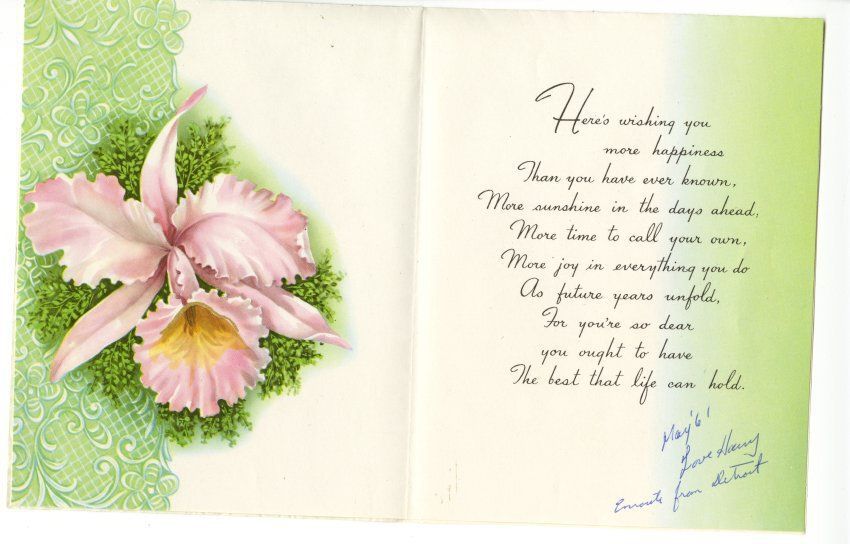 Here's wishing you
more happiness
Than you have ever known,
More sunshine in the days ahead,
More time to call your own,
More joy in everything you do
As future years unfold,
For you're so dear
you ought to have
The best that life can hold.
May '61
Love Harry
Enroute from Detroit